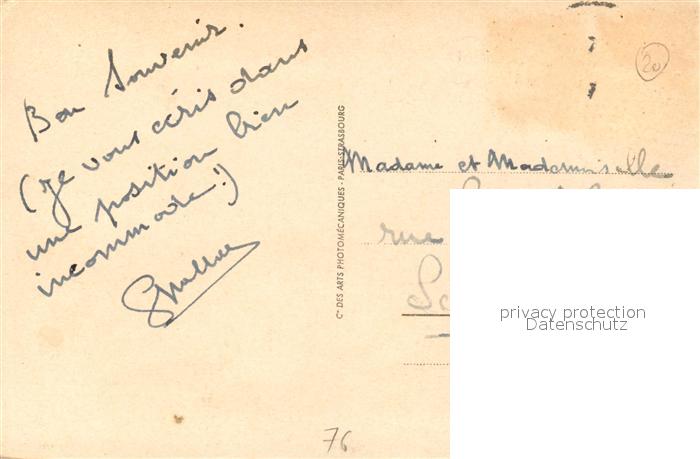 Bon Souvenir.
(je vous écris dans
une position bien
incommode!)
20
Madame et Mademoiselle
rue
Cie DES ARTS PHOTOMÉCANIQUES - PARIS-STRASBOURG
privacy protection
Datenschutz
76